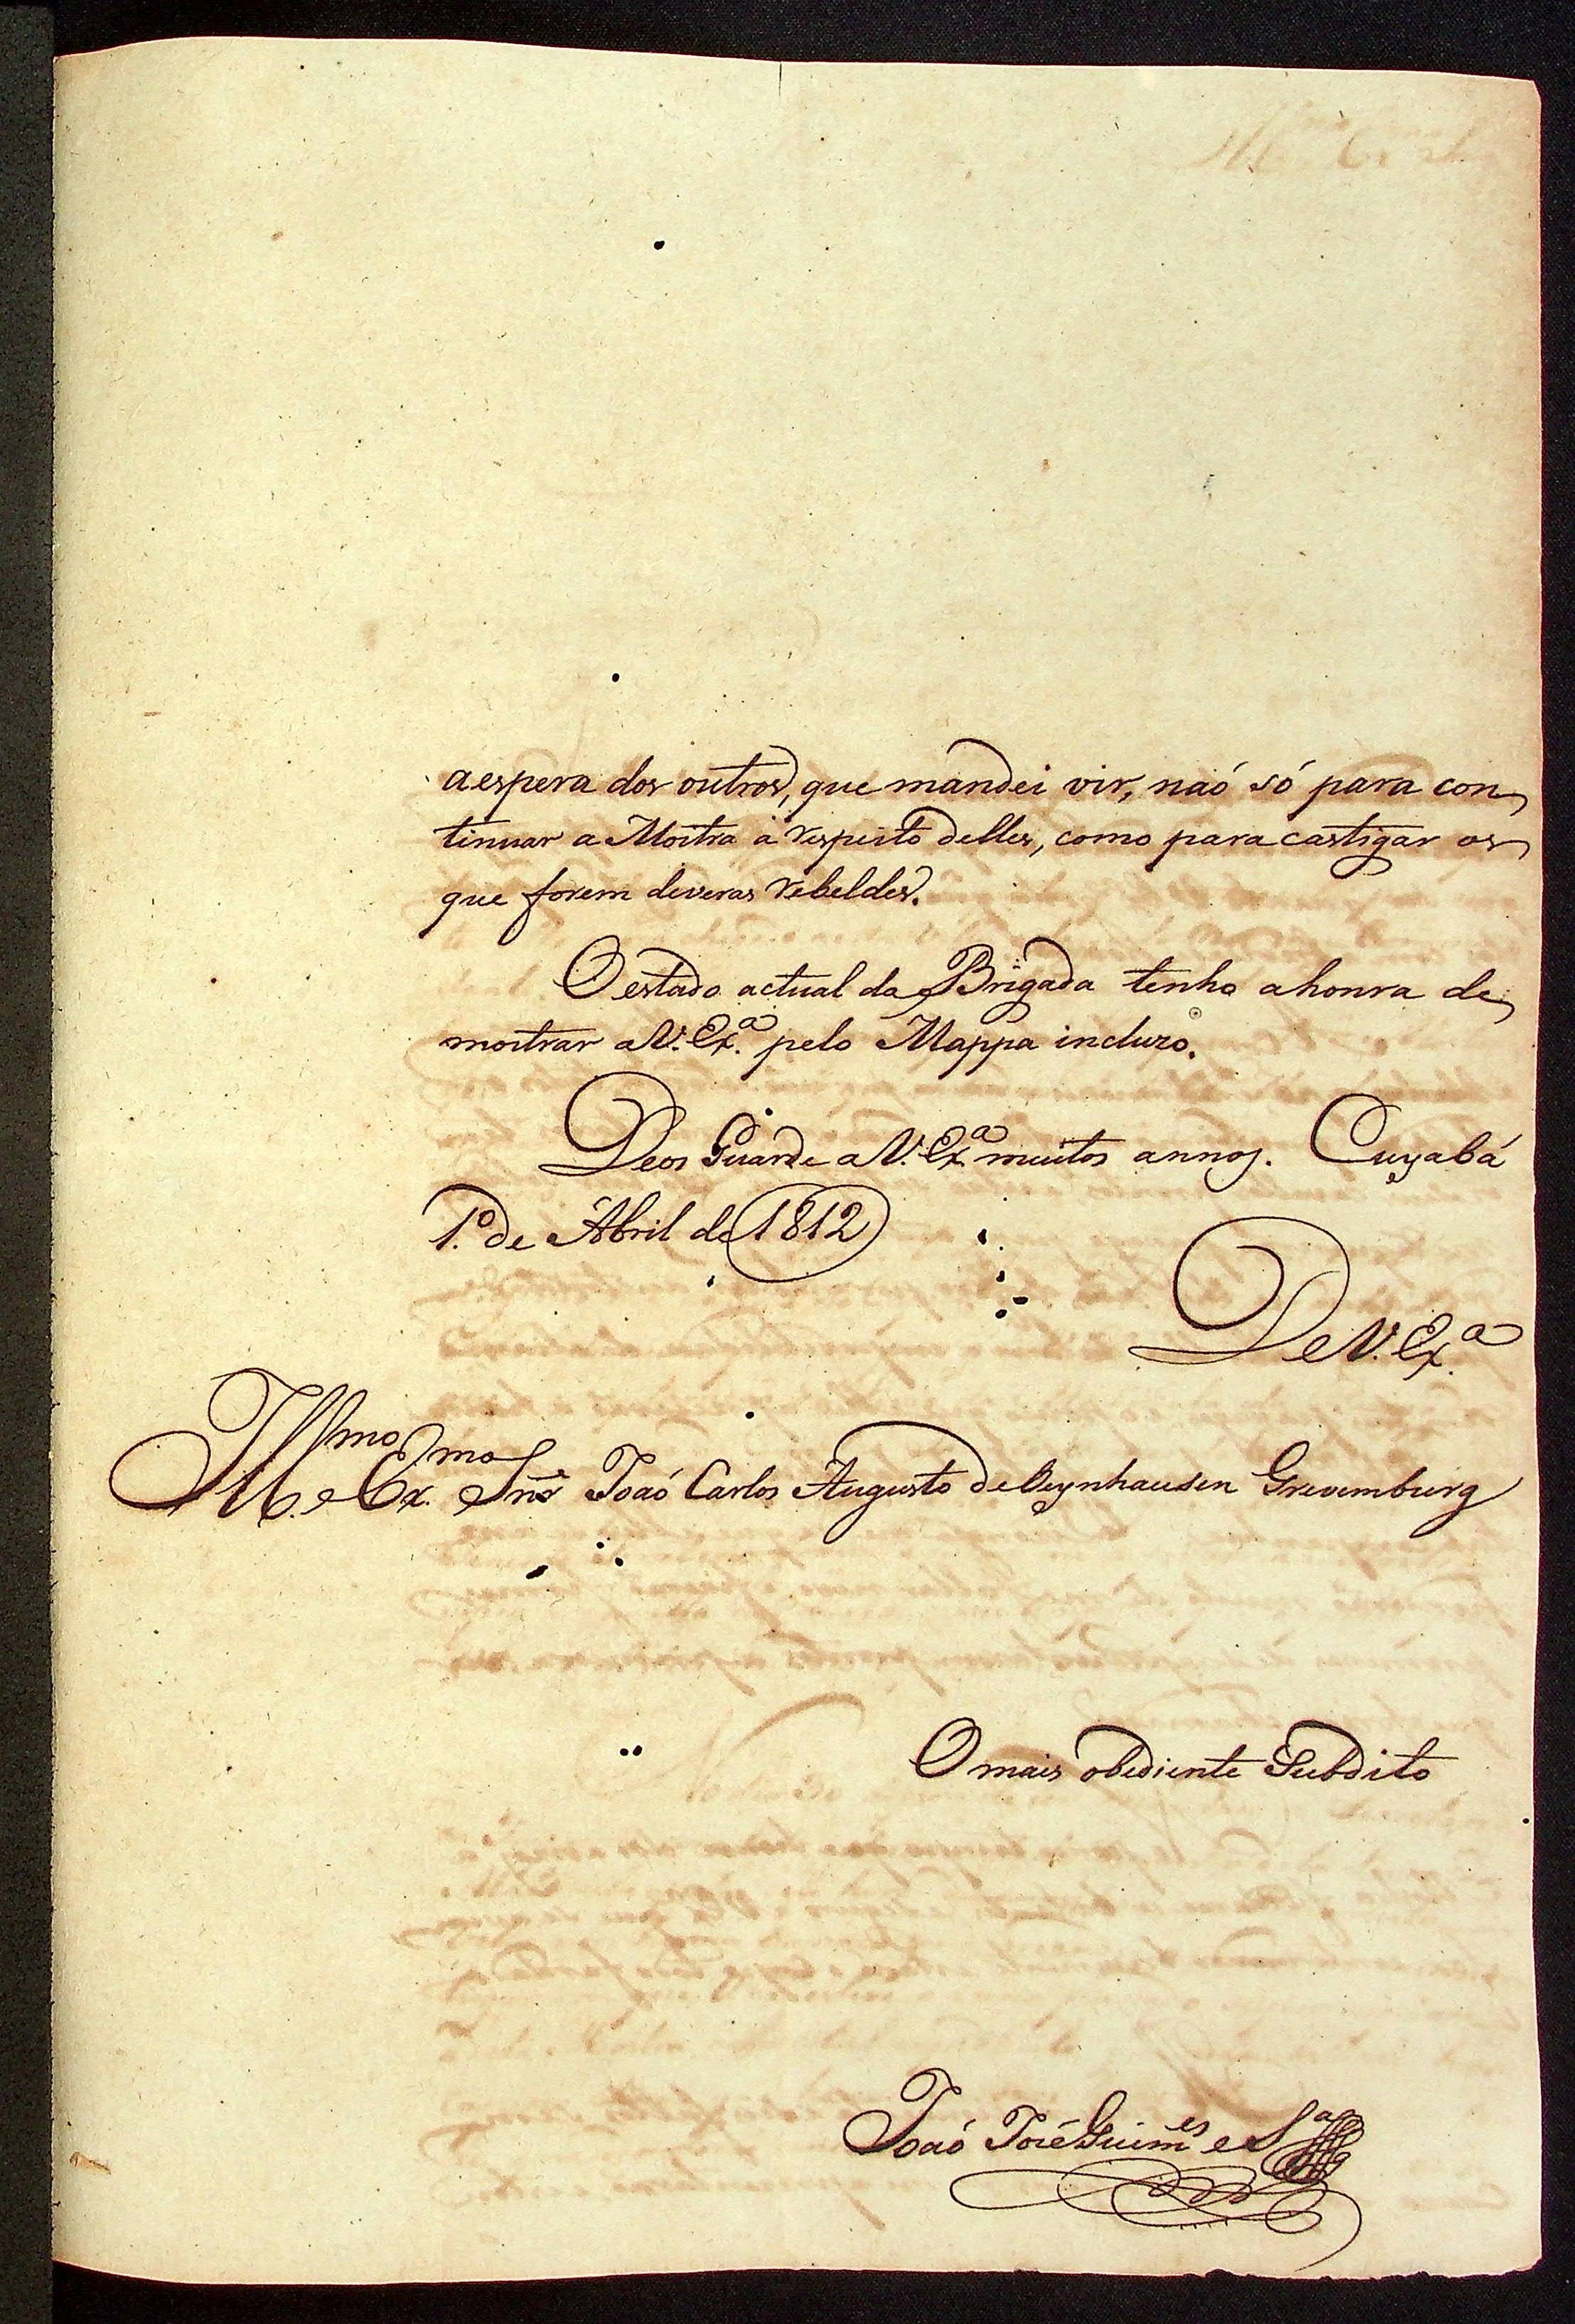 aespera dos outros, que mandei vir, naó só para con
tinuar a Mostra à respeito delles, como para castigar os
que forem deveras rebeldes.
O estado actual da Brigada tenho ahonra de
mostrar aV. Ex.ª pelo Mappa incluzo.
Deos Guarde aV. Ex.ª muitos annos. Cuyabá
1.º de Abril de 1812
DeV. Ex.ª
Ill.mo e Ex.mo Snr̃ Joaó Carlos Augusto deOeynhausen Grevemburg
O mais obediente Subdito
Joaó José Guim.es e S.ª